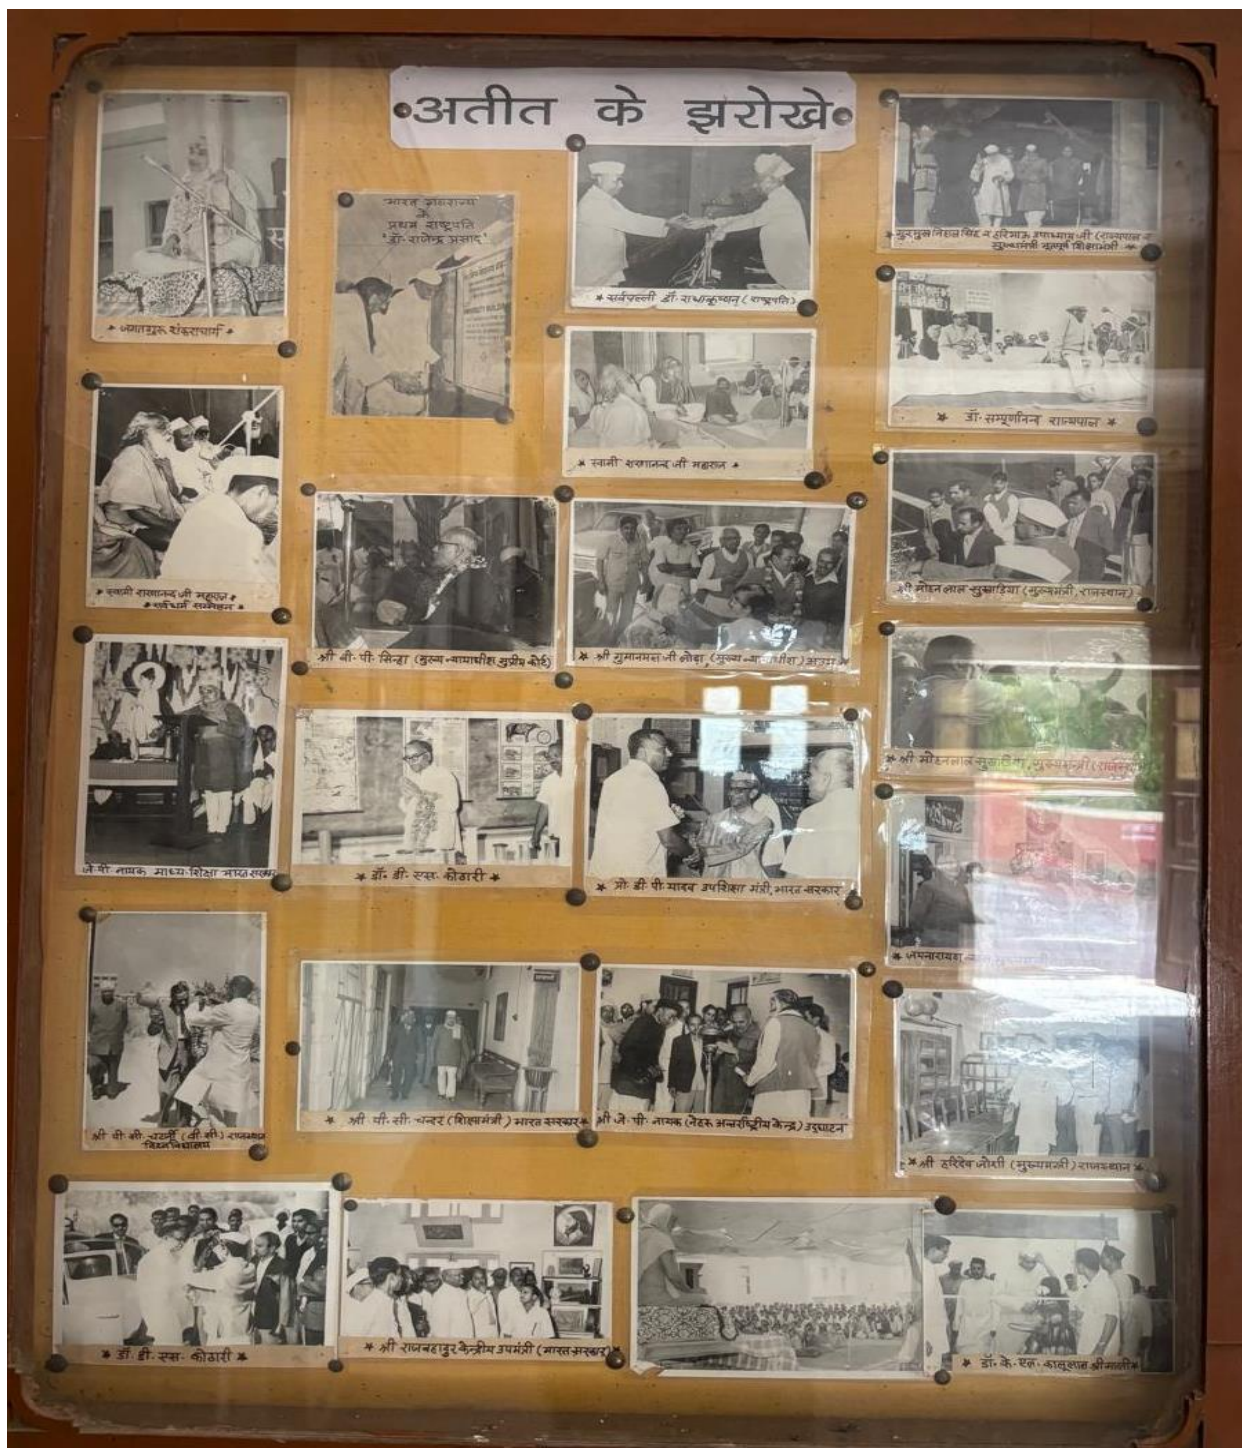 अतीत के झरोखे
* जगतगुरू शंकराचार्य *
भारत गणराज्य
के
प्रथम राष्ट्रपति
'डॉ. राजेन्द्र प्रसाद'
* सर्वपल्ली डॉ. राधाकृष्णन् (राष्ट्रपति) *
* गुरुमुख निहाल सिंह व हरिभाऊ उपाध्याय जी (राज्यपाल व
भूतपूर्व शिक्षामंत्री *
* डॉ. सम्पूर्णानन्द राज्यपाल *
* स्वामी शरणानन्द जी महाराज *
* स्वामी शरणानन्द जी महाराज *
* सर्वधर्म सम्मेलन *
श्री बी. पी. सिन्हा (मुख्य न्यायाधीश सुप्रीम कोर्ट)
* श्री गुमानमल जी लोढ़ा, (मुख्य न्यायाधीश)
श्री मोहन लाल सुखाडिया (मुख्यमंत्री, राजस्थान)
* श्री मोहनलाल सुखाडिया, मुख्यमन्त्री
जे. पी. नायक माध्य. शिक्षा भारत सरकार
* डॉ. डी. एस. कोठारी *
* प्रो. डी. पी. यादव उपशिक्षा मंत्री, भारत सरकार
* जयनारायण
श्री पी. सी. (वी. सी.) राजस्थान
विश्वविद्यालय
* श्री पी. सी. चन्दर (शिक्षामंत्री) भारत सरकार *
श्री जे. पी. नायक (नेहरू अन्तर्राष्ट्रीय केन्द्र) उद्घाटन
* श्री हरिदेव जोशी (मुख्यमन्त्री) राजस्थान *
* डॉ. डी. एस. कोठारी *
* श्री राजबहादुर केन्द्रीय उपमंत्री (भारत सरकार) *
* डॉ. के. एल. कालूलाल श्रीमाली *